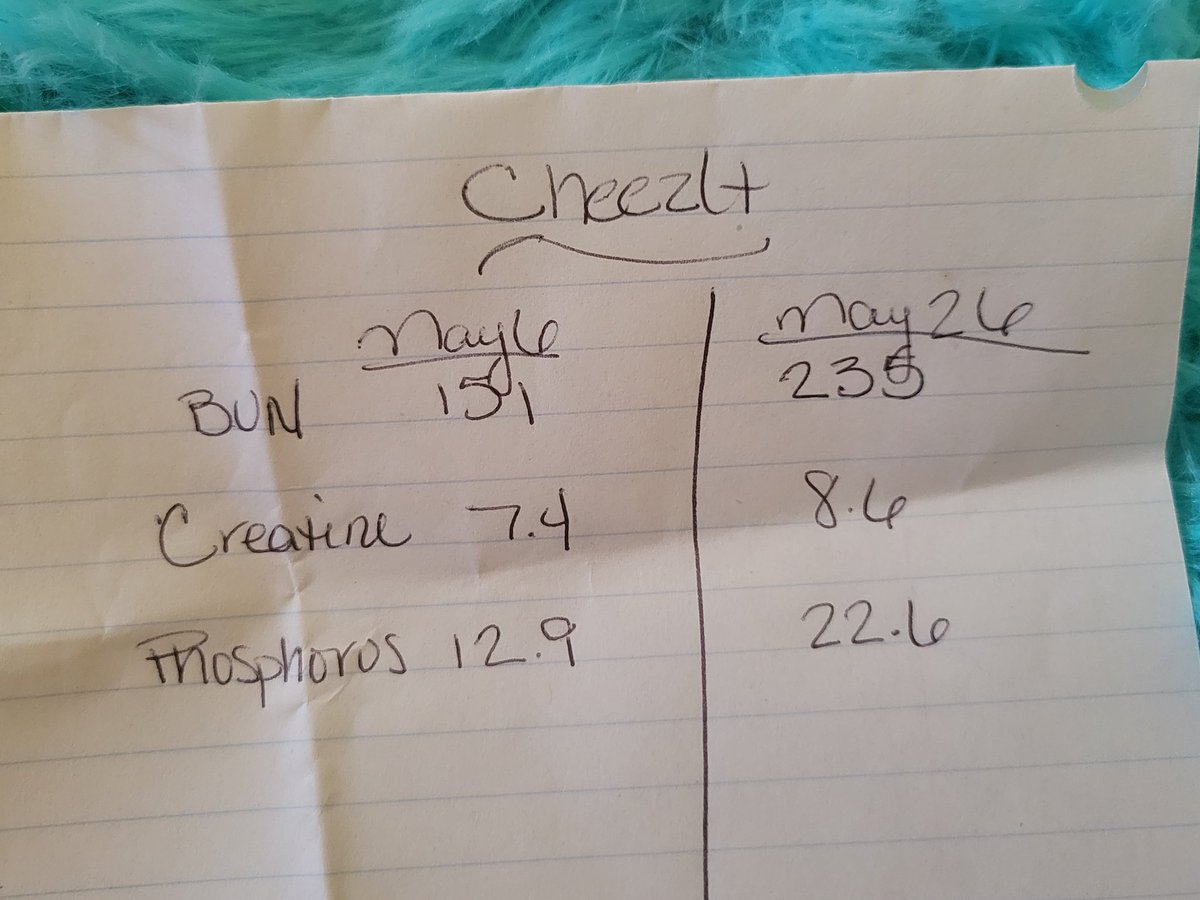 CheezIt
May 6 May 26
BUN 151 235
Creatine 7.4 8.6
Phosphoros 12.9 22.6